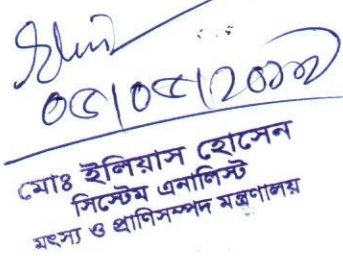 মোঃ ইলিয়াস হোসেন
সিস্টেম এনালিস্ট
মৎস্য ও প্রাণিসম্পদ মন্ত্রণালয়